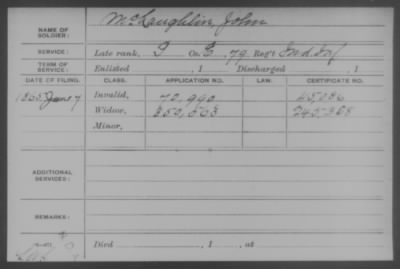 NAME OF SOLDIER: McLaughlin, John
SERVICE: Late rank, P Co. E, 79 Reg't Ind. Inf
TERM OF SERVICE: Enlisted , 1 Discharged , 1
DATE OF FILING. CLASS. APPLICATION NO. LAW. CERTIFICATE NO.
1865 June 7 Invalid, 70,990 45,086
Widow, 350,503
Minor,
ADDITIONAL SERVICES:
REMARKS:
Died , 1 , at